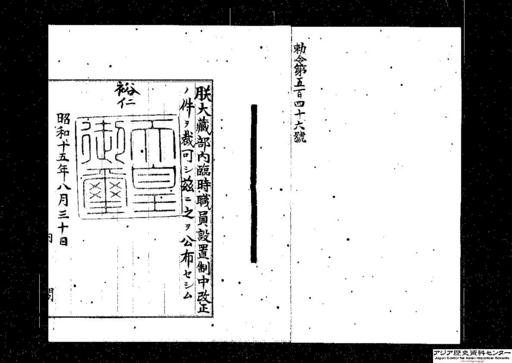 勅令第五百四十六號
朕大藏部內臨時職員設置制中改正
ノ件ヲ裁可シ茲ニ之ヲ公布セシム
裕仁
天皇御璽
昭和十五年八月三十日
アジア歴史資料センター
Japan Center for Asian Historical Records